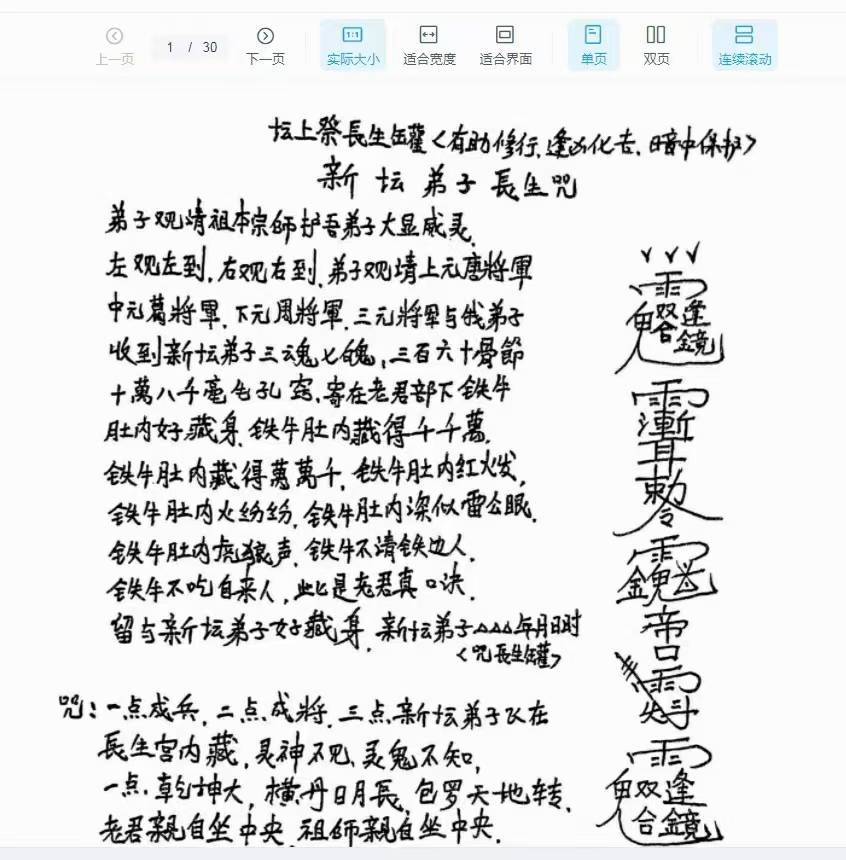 上一页 1 / 30 下一页 1:1 实际大小 适合宽度 适合界面 单页 双页 连续滚动
坛上祭長生罐<有助修行、逢凶化吉、暗中保护>
新坛弟子長生咒
弟子观请祖本宗师护吾弟子大显威灵.
左观左到,右观右到,弟子观请上元唐將軍
中元葛將軍,下元周將軍,三元將军与我弟子
收到新坛弟子三魂七魄,三百六十骨節
十萬八千毫毛孔窍,寄在老君部下铁牛
肚内好藏身,铁牛肚内藏得千千萬.
铁牛肚内藏得萬萬千,铁牛肚内红火发,
铁牛肚内火纷纷,铁牛肚内深似雷公眼.
铁牛肚内虎狼声,铁牛不清铁边人.
铁牛不吃自来人,此是老君真口決.
留与新坛弟子好藏身,新坛弟子△△△年月日时
<咒長生罐>
咒:一点成兵,二点成將,三点新坛弟子 在
長生宫内藏,灵神不见,灵鬼不知,
一点,乾坤大,横丹日月長,包罗天地转.
老君親自坐中央,祖师親自坐中央.
雨
双逢
合鏡
雨
漸
耳
敕令
雨
雨
雨
双逢
合鏡